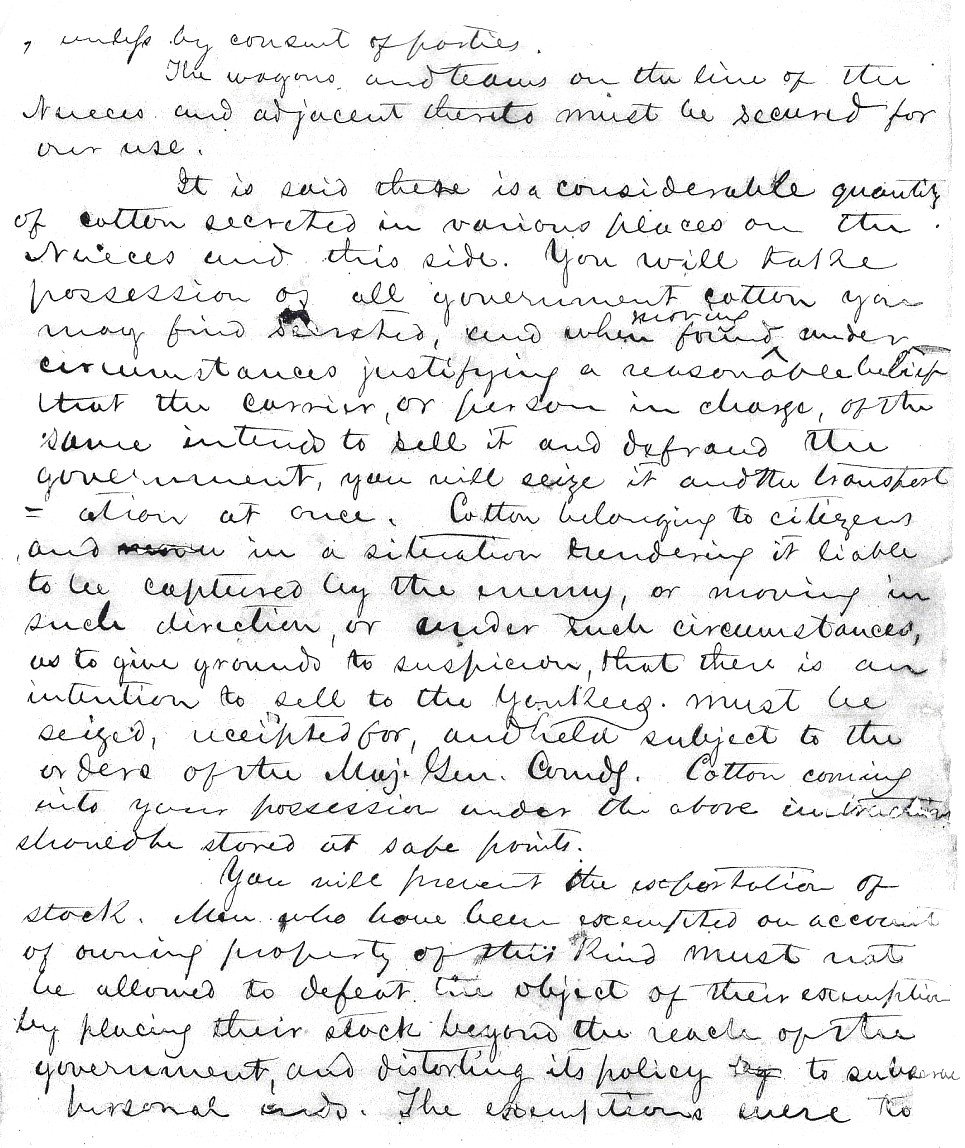 , unless by consent of parties.
The wagons and teams on the line of the
Nueces and adjacent thereto must be secured for
our use.
It is said there is a considerable quantity
of cotton secreted in various places on the
Nueces and this side. You will take
possession of all government cotton you
may find secreted, and when found moving under
circumstances justifying a reasonable belief
that the carrier, or person in charge, of the
same intends to sell it and defraud the
government, you will seize it and the transport
= ation at once. Cotton belonging to citizens
and in a situation rendering it liable
to be captured by the enemy, or moving in
such direction, or under such circumstances,
as to give grounds to suspicion, that there is an
intention to sell to the Yankees. must be
seized, receipted for, and held subject to the
orders of the Maj. Gen. Comdg. Cotton coming
into your possession under the above instructions
should be stored at safe points.
You will prevent the exportation of
stock. Men who have been exempted on account
of owning property of this kind must not
be allowed to defeat the object of their exemption
by placing their stock beyond the reach of the
government, and distorting its policy to subserve
personal ends. The exemptions were to